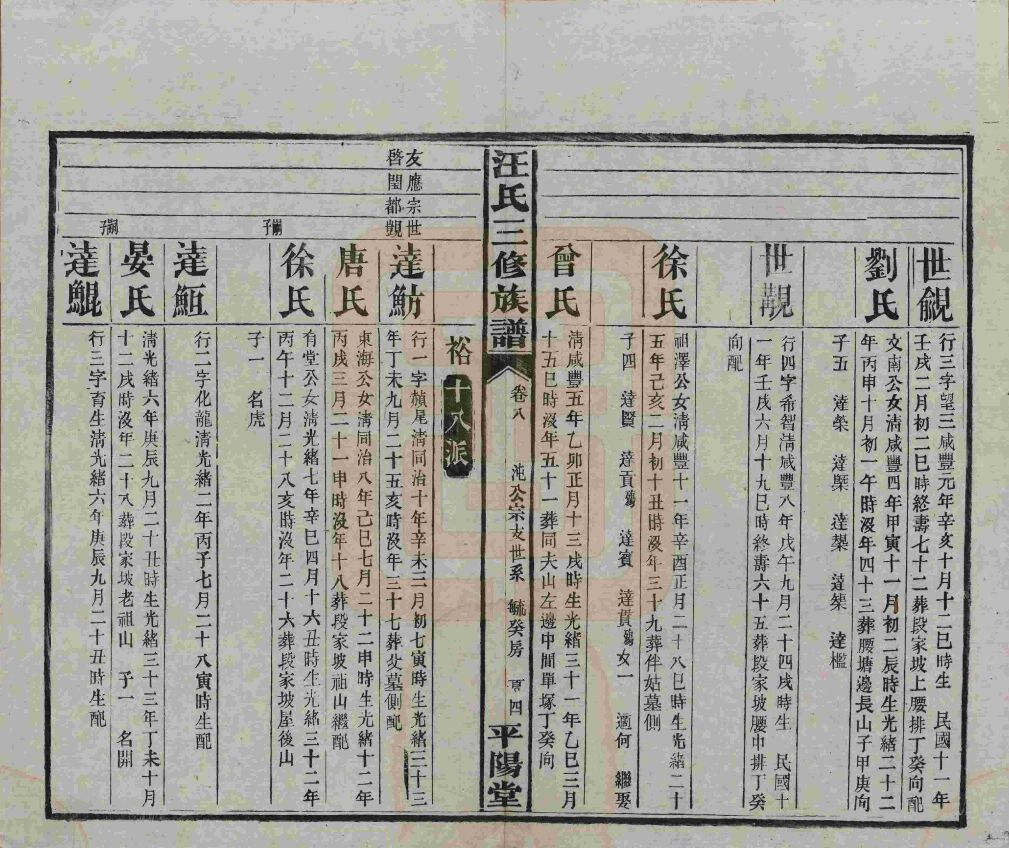 世覦
行三字望三咸豐元年辛亥十月十二巳時生 民國十一年
壬戌二月初二巳時終壽七十二葬段家坡上腰排丁癸向配
劉氏
文南公女淸咸豐四年甲寅十一月初二辰時生光緒二十二
年丙申十月初一午時沒年四十三葬腰塘邊長山子甲庚向
子五 達榮 達槼 達槼 達榘 達檻
世覯
行四字希智淸咸豐八年戊午九月二十四戌時生 民國十
一年壬戌六月十九巳時終壽六十五葬段家坡腰中排丁癸
向配
徐氏
祖澤公女淸咸豐十一年辛酉正月二十八巳時生光緒二十
五年己亥二月初十丑時沒年三十九葬伴姑墓側
子四 達賢 達貢殤 達賓 達貫殤女一 適何 繼娶
曾氏
淸咸豐五年乙卯正月十三戌時生光緒三十一年乙巳三月
十五巳時沒年五十一葬同夫山左邊中間單塚丁癸向
汪氏三修族譜
卷八 沌公宗支世系 毓癸房 頁四
平陽堂
裕 十八派
友應宗世
啓閏都觀
達魴
行一字赬尾淸同治十年辛未三月初七寅時生光緒三十三
年丁未九月二十五亥時沒年三十七葬父墓側配
唐氏
東海公女淸同治八年己巳七月二十二申時生光緒十二年
丙戌三月二十一申時沒年十八葬段家坡祖山繼配
徐氏
有堂公女淸光緒七年辛巳四月十六丑時生光緒三十二年
丙午十二月二十八亥時沒年二十六葬段家坡屋後山
子一 名虎
嗣子
達䱎
行二字化龍淸光緒二年丙子七月二十八寅時生配
晏氏
淸光緒六年庚辰九月二十丑時生光緒三十三年丁未十月
十二戌時沒年二十八葬段家坡老祖山 子一 名開
嗣子
達鯤
行三字育生淸光緒六年庚辰九月二十丑時生配